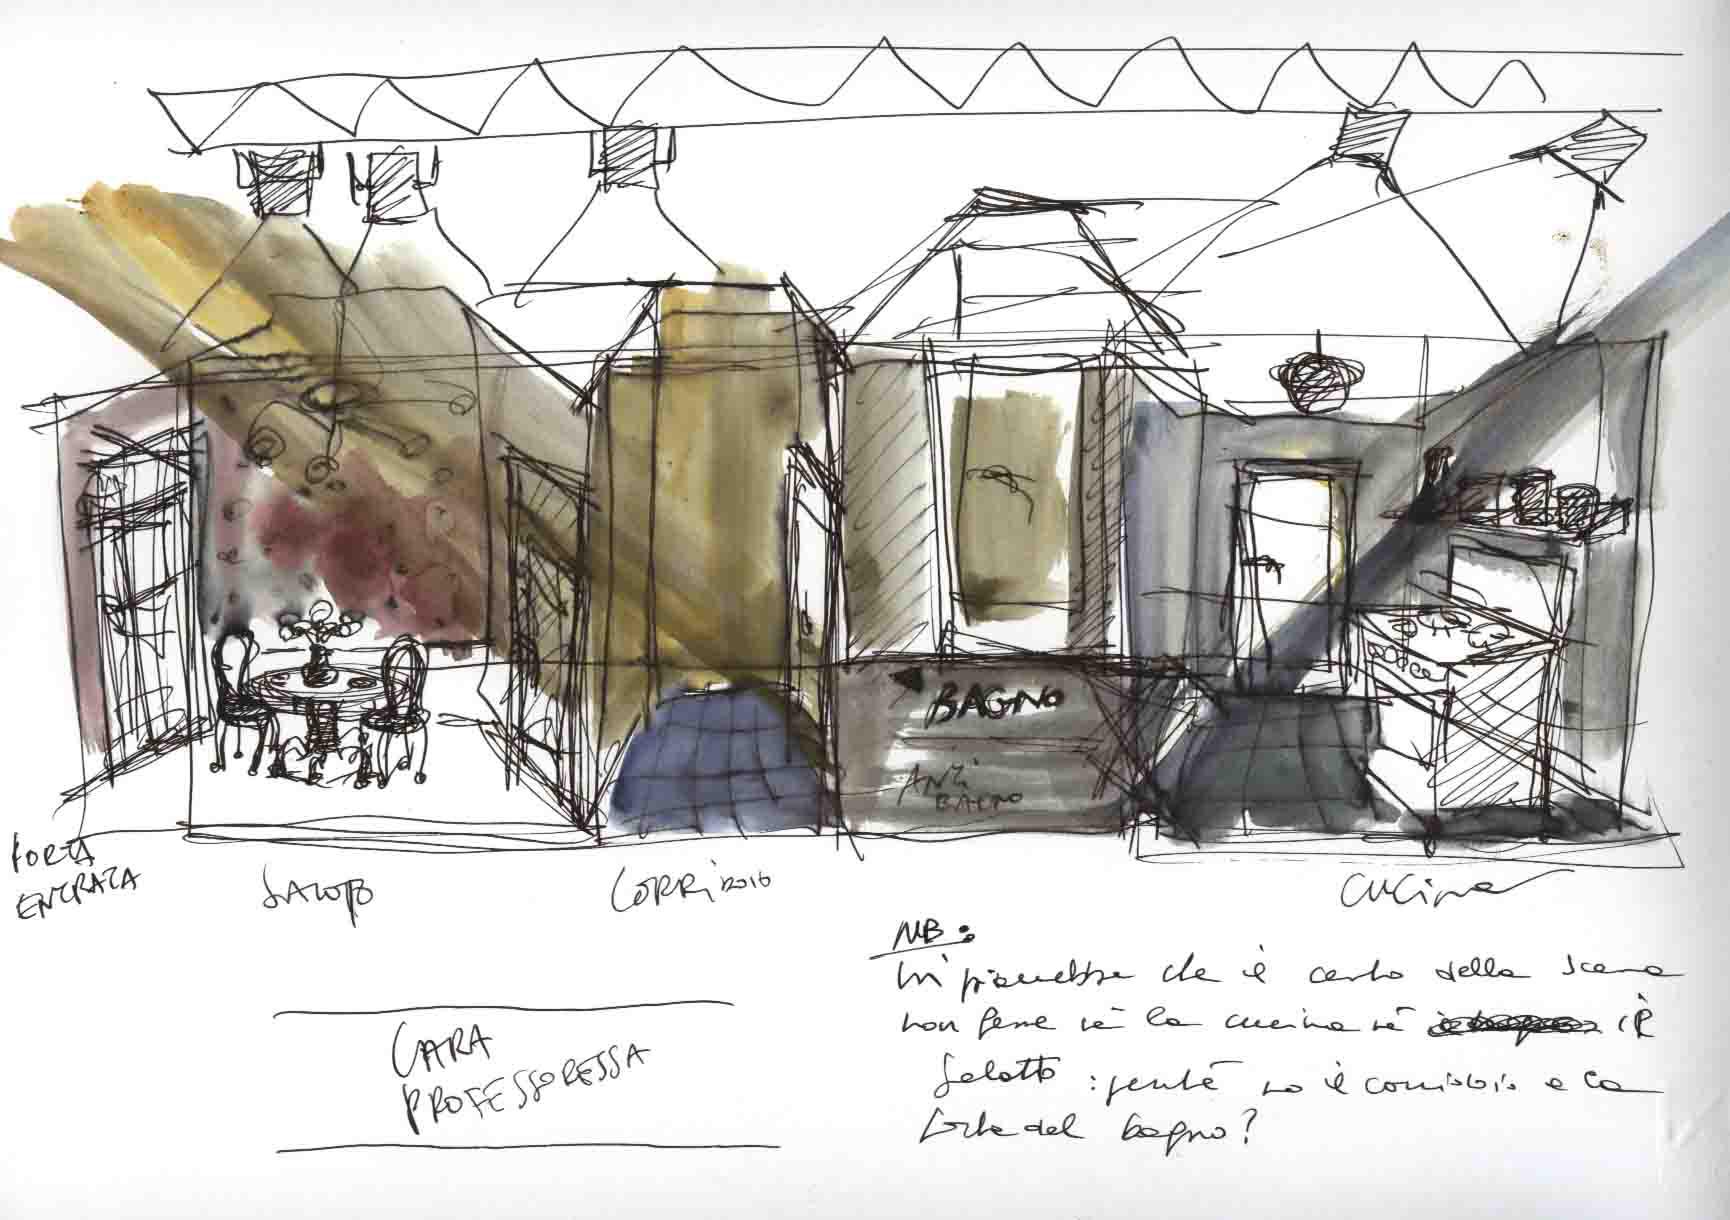 BAGNO
ANTI
BAGNO
PORTA
ENTRATA
SALOTTO
CORRIDOIO
CUCINA
CARA
PROFESSORESSA
NB:
Mi piacerebbe che il centro della scena
non fosse nè la cucina nè il
Salotto: perchè no il corridoio e la
porta del bagno?